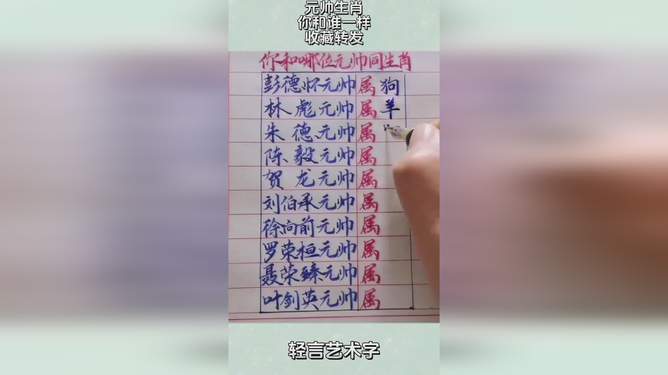 元帅生肖
你和谁一样
收藏转发
你和哪位元帅同生肖
彭德怀元帅属狗
林彪元帅属羊
朱德元帅属
陈毅元帅属
贺龙元帅属
刘伯承元帅属
徐向前元帅属
罗荣桓元帅属
聂荣臻元帅属
叶剑英元帅属
轻言艺术字